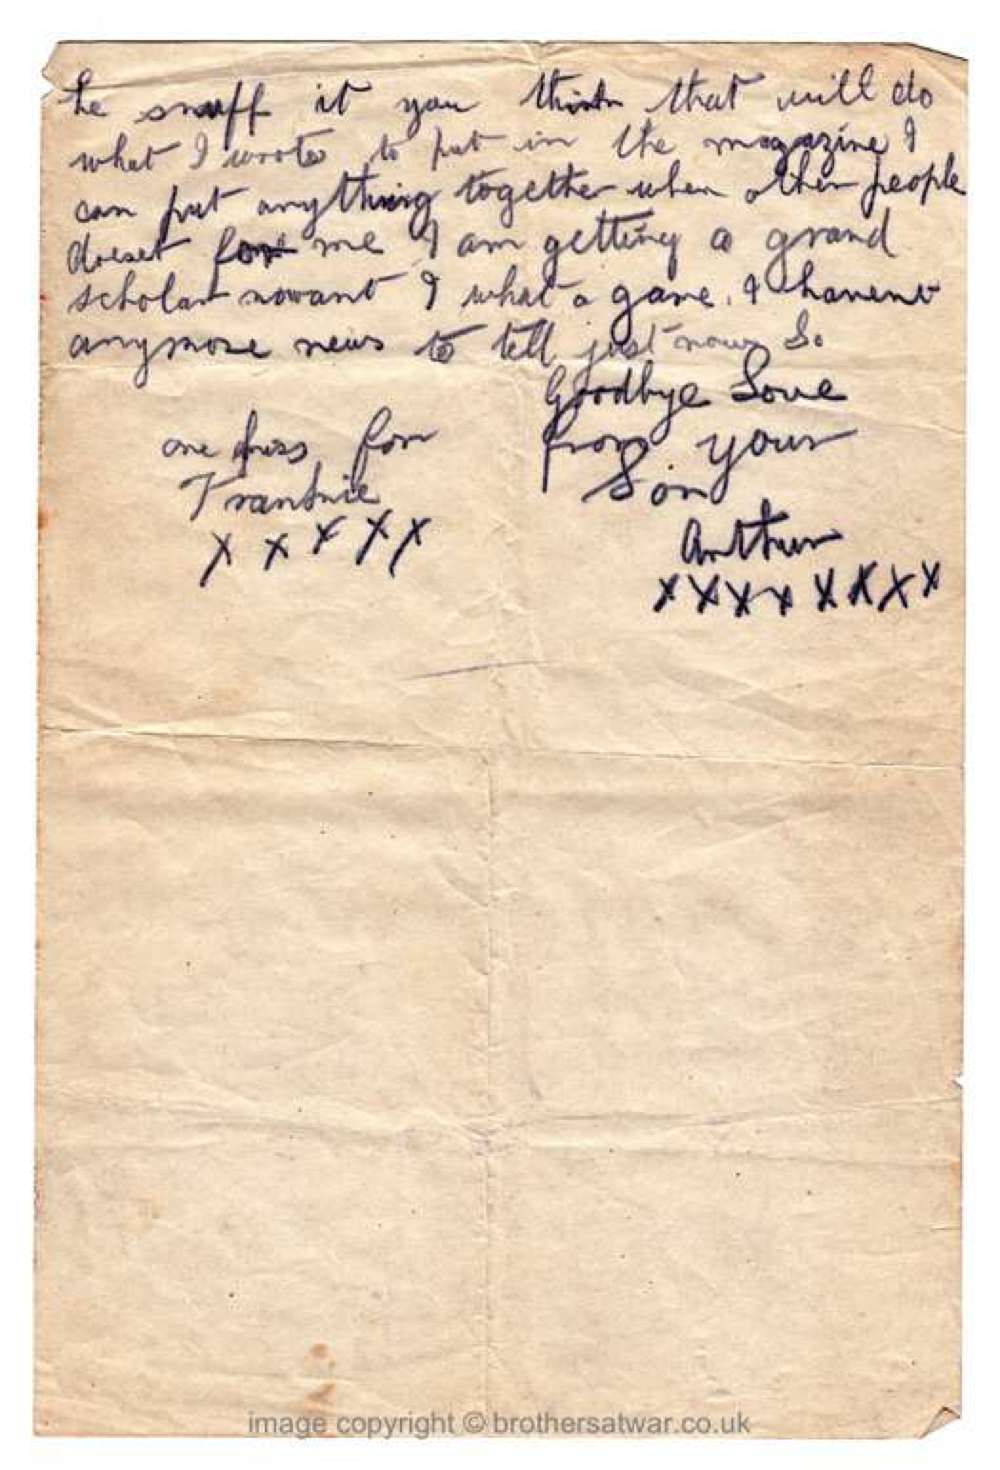 he snuff it you think that will do
what I wrote to put in the magazine I
can put anything together when other people
doeset for me I am getting a grand
scholar nowant I what a game. I havent
anymore news to tell just now So
Goodbye Love
from your
Son
Arthur
xxxxxxxx
one for
Frankie
x x x x x
image copyright © brothersatwar.co.uk